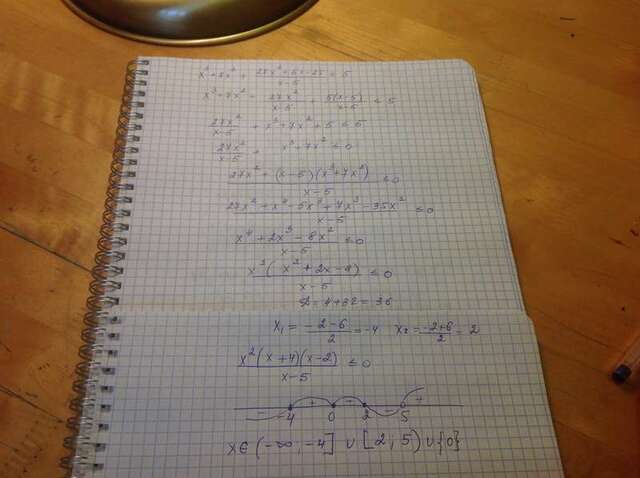 x³+7x²+ (27x²+5x-25)/(x-5) ≤ 5
x³+7x²+ 27x²/(x-5) + 5(x-5)/(x-5) ≤ 5
27x²/(x-5) + x³+7x²+5 ≤ 5
27x²/(x-5) + x³+7x² ≤ 0
(27x²+(x-5)(x³+7x²))/(x-5) ≤ 0
(27x²+x⁴-5x³+7x³-35x²)/(x-5) ≤ 0
(x⁴+2x³-8x²)/(x-5) ≤ 0
x²(x²+2x-8)/(x-5) ≤ 0
D=4+32=36
x₁=(-2-6)/2=-4 x₂=(-2+6)/2=2
x²(x+4)(x-2)/(x-5) ≤ 0
- + - - +
-4 0 2 5
x∈(-∞;-4] ∪ [2;5) ∪ {0}